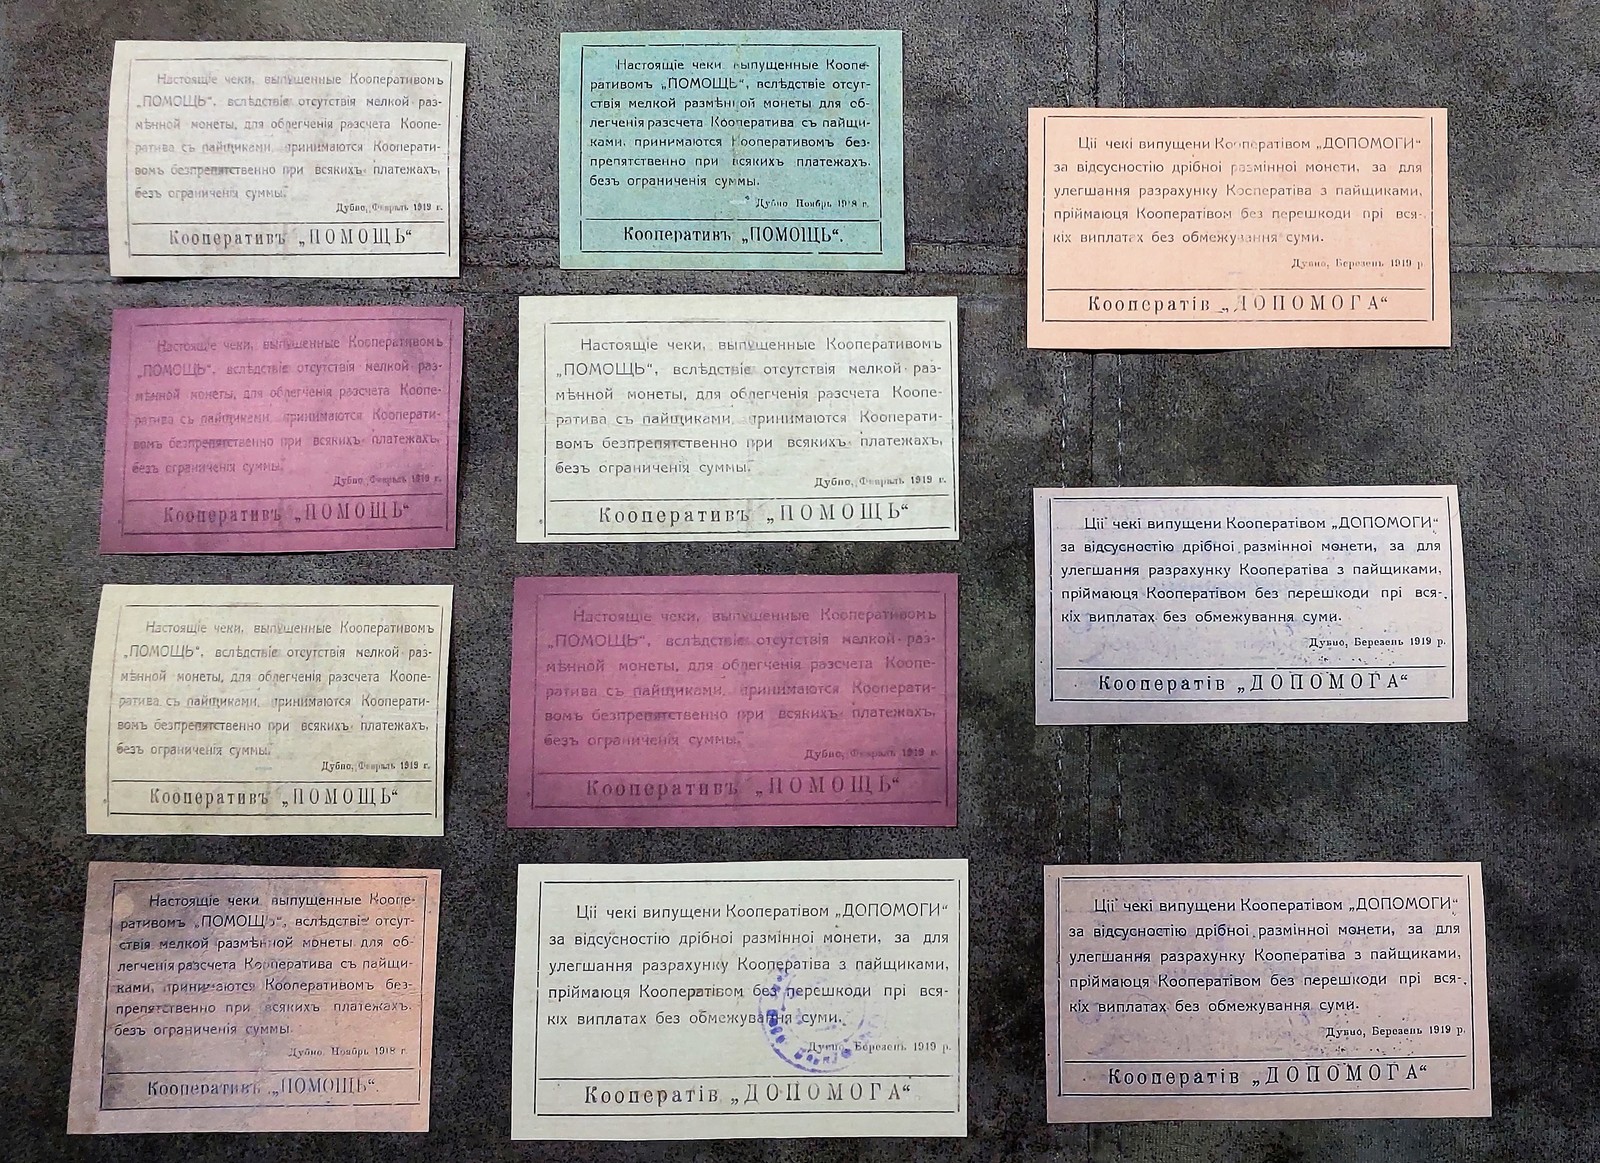 Настоящіе чеки, выпущенные Кооперативомъ
„ПОМОЩЬ“, вслѣдствіе отсутствія мелкой раз-
мѣнной монеты, для облегченія разсчета Коопе-
ратива съ пайщиками, принимаются Кооперати-
вомъ безпрепятственно при всякихъ платежахъ,
безъ ограниченія суммы.
Дубно, Февраль 1919 г.
Кооперативъ „ПОМОЩЬ“
Настоящіе чеки, выпущенные Кооперативомъ
„ПОМОЩЬ“, вслѣдствіе отсутствія мелкой раз-
мѣнной монеты, для облегченія разсчета Коопе-
ратива съ пайщиками, принимаются Кооперати-
вомъ безпрепятственно при всякихъ платежахъ,
безъ ограниченія суммы.
Дубно, Февраль 1919 г.
Кооперативъ „ПОМОЩЬ“
Настоящіе чеки, выпущенные Кооперативомъ
„ПОМОЩЬ“, вслѣдствіе отсутствія мелкой раз-
мѣнной монеты, для облегченія разсчета Коопе-
ратива съ пайщиками, принимаются Кооперати-
вомъ безпрепятственно при всякихъ платежахъ,
безъ ограниченія суммы.
Дубно, Февраль 1919 г.
Кооперативъ „ПОМОЩЬ“
Настоящіе чеки выпущенные Коопе-
ративомъ „ПОМОЩЬ“, вслѣдствіе отсут-
ствія мелкой размѣнной монеты для об-
легченія разсчета Кооператива съ пайщи-
ками, принимаются Кооперативомъ без-
препятственно при всякихъ платежахъ.
безъ ограниченія суммы.
Дубно Ноябрь 1918 г.
Кооперативъ „ПОМОЩЬ“.
Настоящіе чеки выпущенные Коопе-
ративомъ „ПОМОЩЬ“, вслѣдствіе отсут-
ствія мелкой размѣнной монеты для об-
легченія разсчета Кооператива съ пайщи-
ками, принимаются Кооперативомъ без-
препятственно при всякихъ платежахъ.
безъ ограниченія суммы.
Дубно Ноябрь 1918 г.
Кооперативъ „ПОМОЩЬ“.
Настоящіе чеки, выпущенные Кооперативомъ
„ПОМОЩЬ“, вслѣдствіе отсутствія мелкой раз-
мѣнной монеты, для облегченія разсчета Коопе-
ратива съ пайщиками, принимаются Кооперати-
вомъ безпрепятственно при всякихъ платежахъ,
безъ ограниченія суммы.
Дубно, Февраль 1919 г.
Кооперативъ „ПОМОЩЬ“
Настоящіе чеки, выпущенные Кооперативомъ
„ПОМОЩЬ“, вслѣдствіе отсутствія мелкой раз-
мѣнной монеты, для облегченія разсчета Коопе-
ратива съ пайщиками, принимаются Кооперати-
вомъ безпрепятственно при всякихъ платежахъ,
безъ ограниченія суммы.
Дубно, Февраль 1919 г.
Кооперативъ „ПОМОЩЬ“
Ціі чекі випущени Кооператівом „ДОПОМОГИ“
за відсусностію дрібної размінної монети, за для
улегшання разрахунку Кооператіва з пайщиками,
пріймаюця Кооператівом без перешкоди прі вся-
кіх виплатах без обмежування суми.
Дубно, Березень 1919 р.
Кооператів „ДОПОМОГА“
Ціі чекі випущени Кооператівом „ДОПОМОГИ“
за відсусностію дрібної размінної монети, за для
улегшання разрахунку Кооператіва з пайщиками,
пріймаюця Кооператівом без перешкоди прі вся-
кіх виплатах без обмежування суми.
Дубно, Березень 1919 р
Кооператів „ДОПОМОГА“
Ціі чекі випущени Кооператівом „ДОПОМОГИ“
за відсусностію дрібної размінної монети, за для
улегшання разрахунку Кооператіва з пайщиками,
пріймаюця Кооператівом без перешкоди прі вся-
кіх виплатах без обмежування суми.
Дубно, Березень 1919 р.
Кооператів „ДОПОМОГА“
Ціі чекі випущени Кооператівом „ДОПОМОГИ“
за відсусностію дрібної размінної монети, за для
улегшання разрахунку Кооператіва з пайщиками,
пріймаюця Кооператівом без перешкоди прі вся-
кіх виплатах без обмежування суми.
Дубно, Березень 1919 р.
Кооператів „ДОПОМОГА“